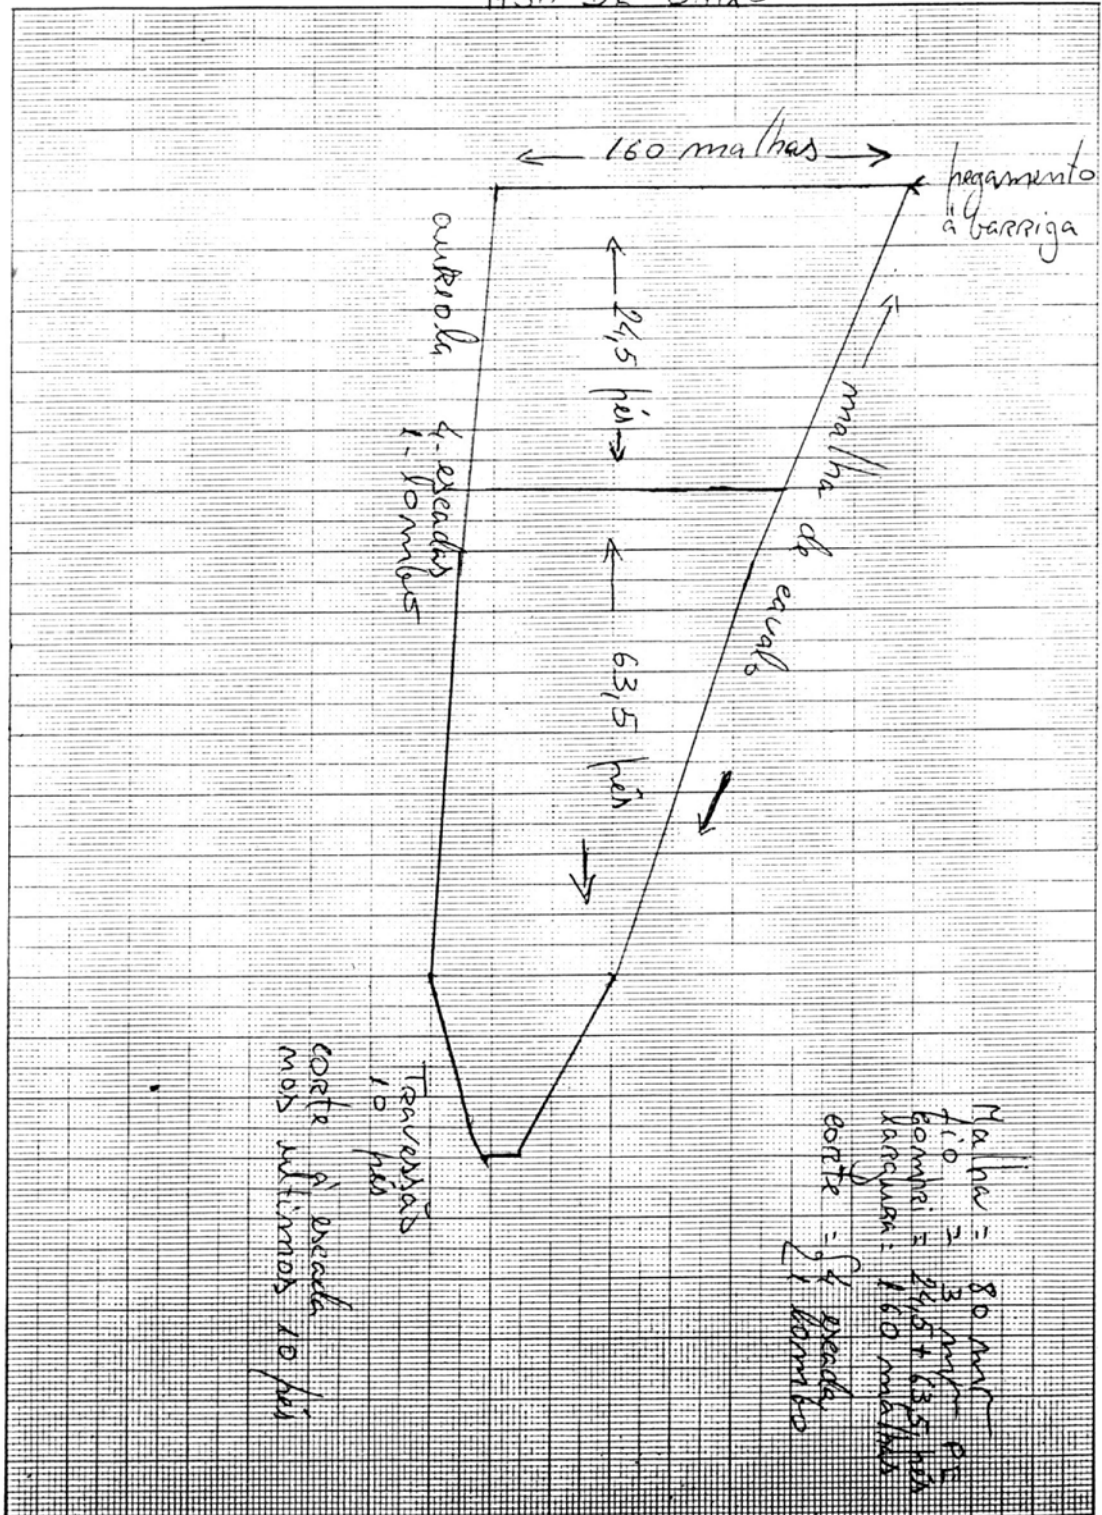 160 malhas
pegamento
à barriga
24,5 pés
malha de cavalo
aureola
4- escadas
1- lombo
63,5 pés
Travessão
10 pés
corte à escada
nos ultimos 10 pés
Malha = 80 m
fio = 3 m PE
compri = 24,5 + 63,5 pés
largura: 160 malhas
corte = { 4 escada
1 lombo